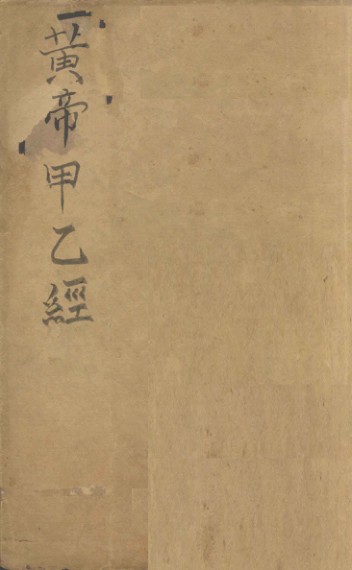 黃帝甲乙經